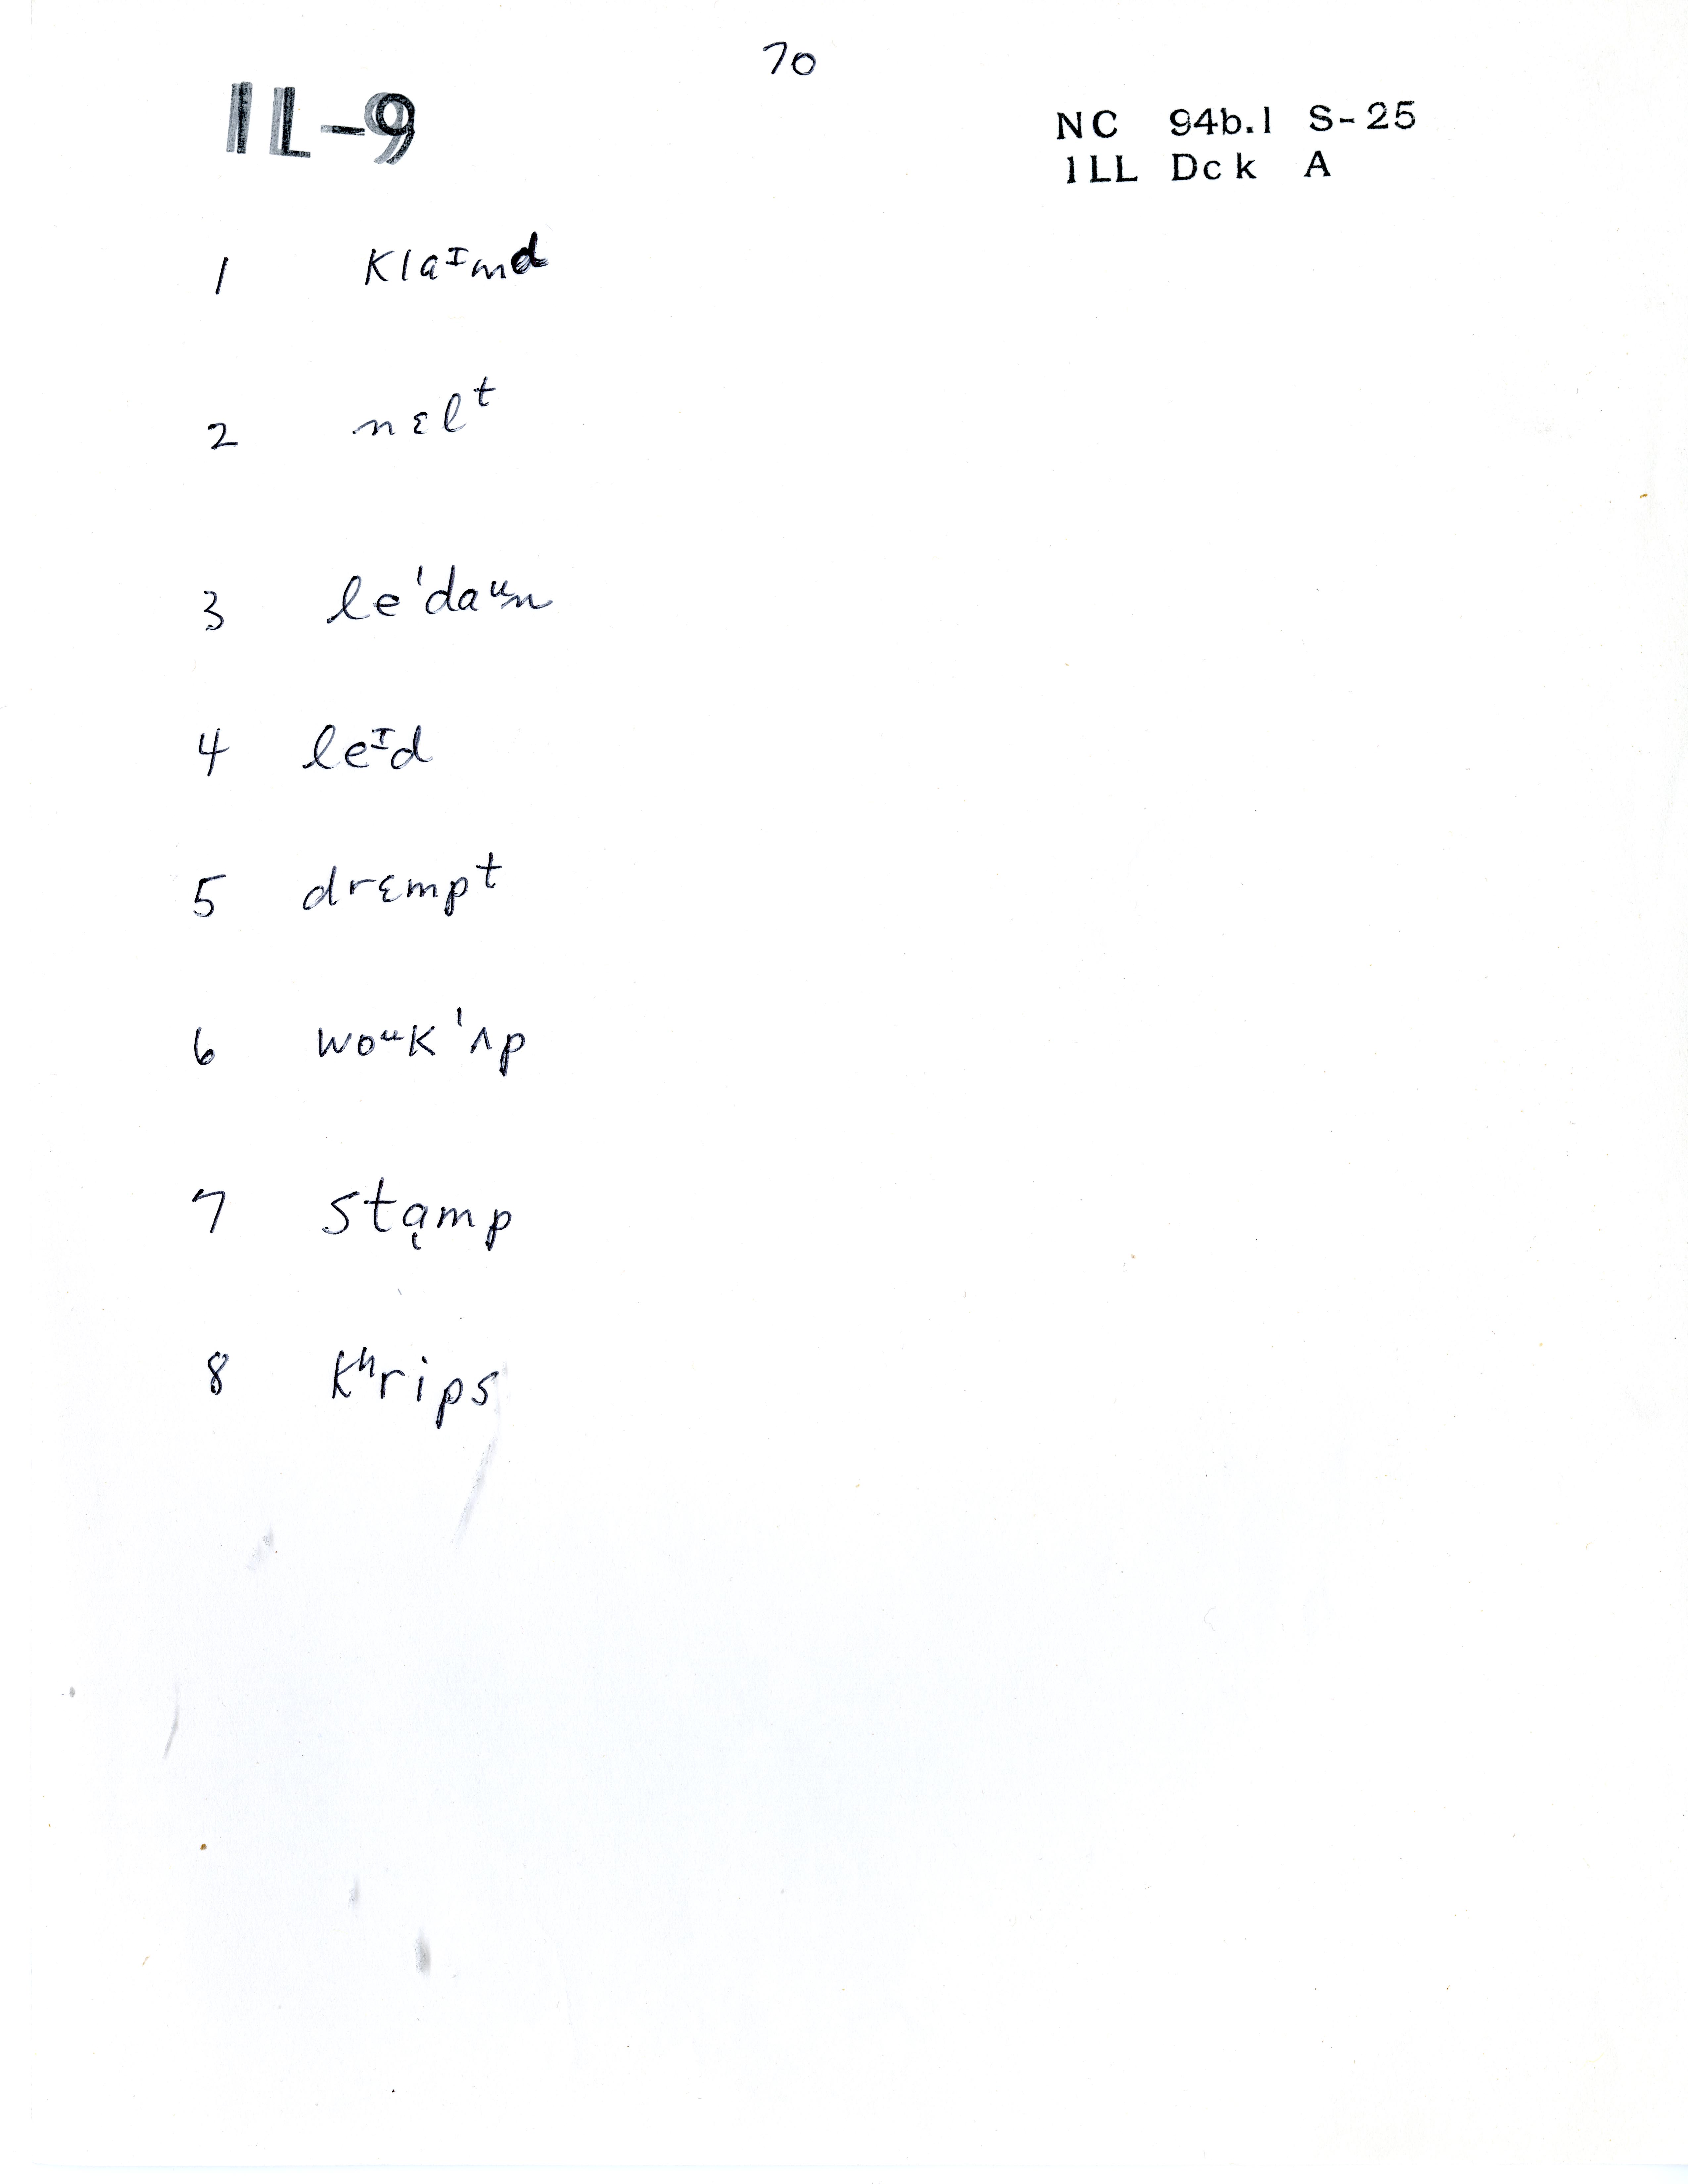 70
IL-9
NC 94b.1 S-25
ILL Dck A
1 klaᶦmd
2 nɛlᵗ
3 le'daᵘn
4 leᶦd
5 drɛmpᵗ
6 woᵘk'ʌp
7 stąmp
8 kʰrips